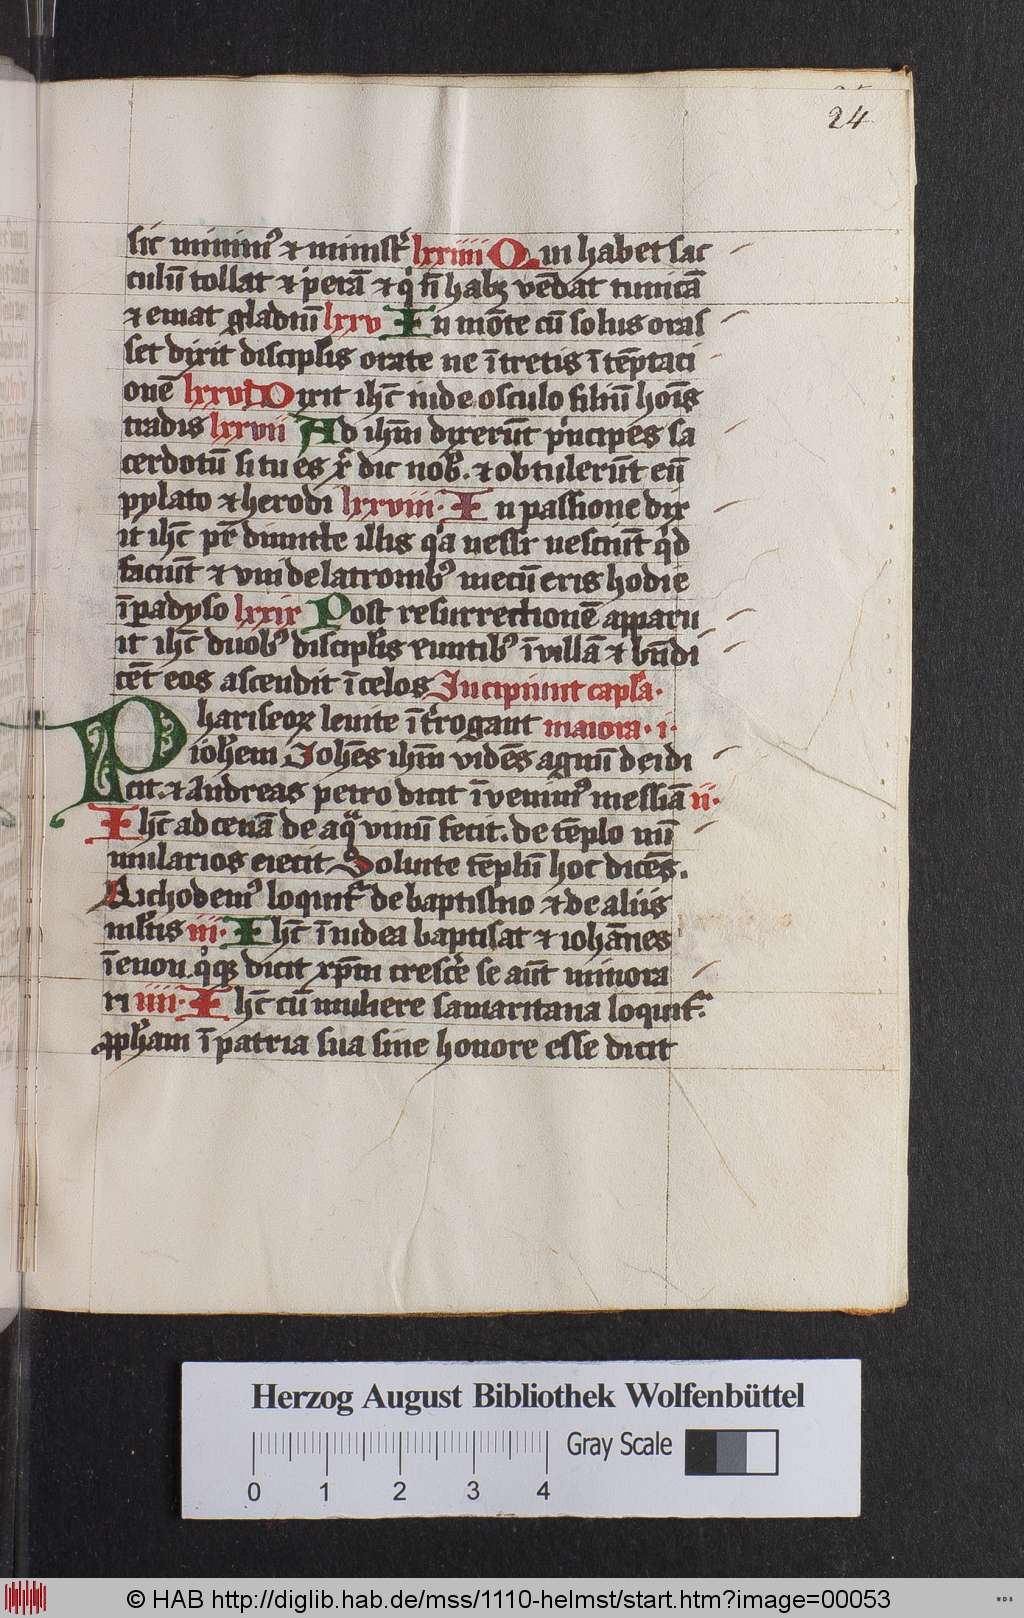 24
sic minim᷒ ⁊ minist̉ lxxiiii Qui habet sac
culū tollat ⁊ perā ⁊ q̇ n̄ habꝫ vēdat tunicā
⁊ emat gladiū lxxv In mōte cū solus oras
set dixit discipłis orate ne ītretis ī tēptaci
onē lxxvi Dixit ih̄c iude osculo filiū hoīs
tradis lxxvii Ad ih̄m dixerūt p̍ncipes sa
cerdotū si tu es xp̄ dic nob̄. ⁊ obtulerūt eū
pylato ⁊ herodi lxxviii· In passione dix
it ih̄c pr̄ dimitte illis q̍a nesciūt q̍d
faciūt ⁊ vni de latronib᷒ mecū eris hodie
ī padyso lxxix Post resurrectionē apparu
it ih̄c duob᷒ discipłis euntib᷒ ī villā ⁊ bn̄di
cēt eos ascendit ī celos Incipiunt capła·
Phariseoꝝ leuite īt̉rogant maiora· i·
ioh̄em Joh̄es ih̄m vidēs agnū dei di
cit. ⁊ Andreas petro dicit īvenim᷒ messiā ii·
Ih̄c ad cenā de aq̄ vinū fecit. de tēplo nū
mularios eiecit Soluite tēplū hoc dicēs.
Nichodem᷒ loquit̉ de baptismo ⁊ de aliis
młtis iii· Ih̄c ī iudea baptisat ⁊ iohānes
ī enon q̍qꝫ dicit xp̄m cresc̉e se aūt minora
ri iiii· Ih̄c cū muliere samaritana loquit̉.
ꝓph̄am ī patria sua sine honore esse dicit
Herzog August Bibliothek Wolfenbüttel
Gray Scale
0 1 2 3 4
© HAB http://diglib.hab.de/mss/1110-helmst/start.htm?image=00053